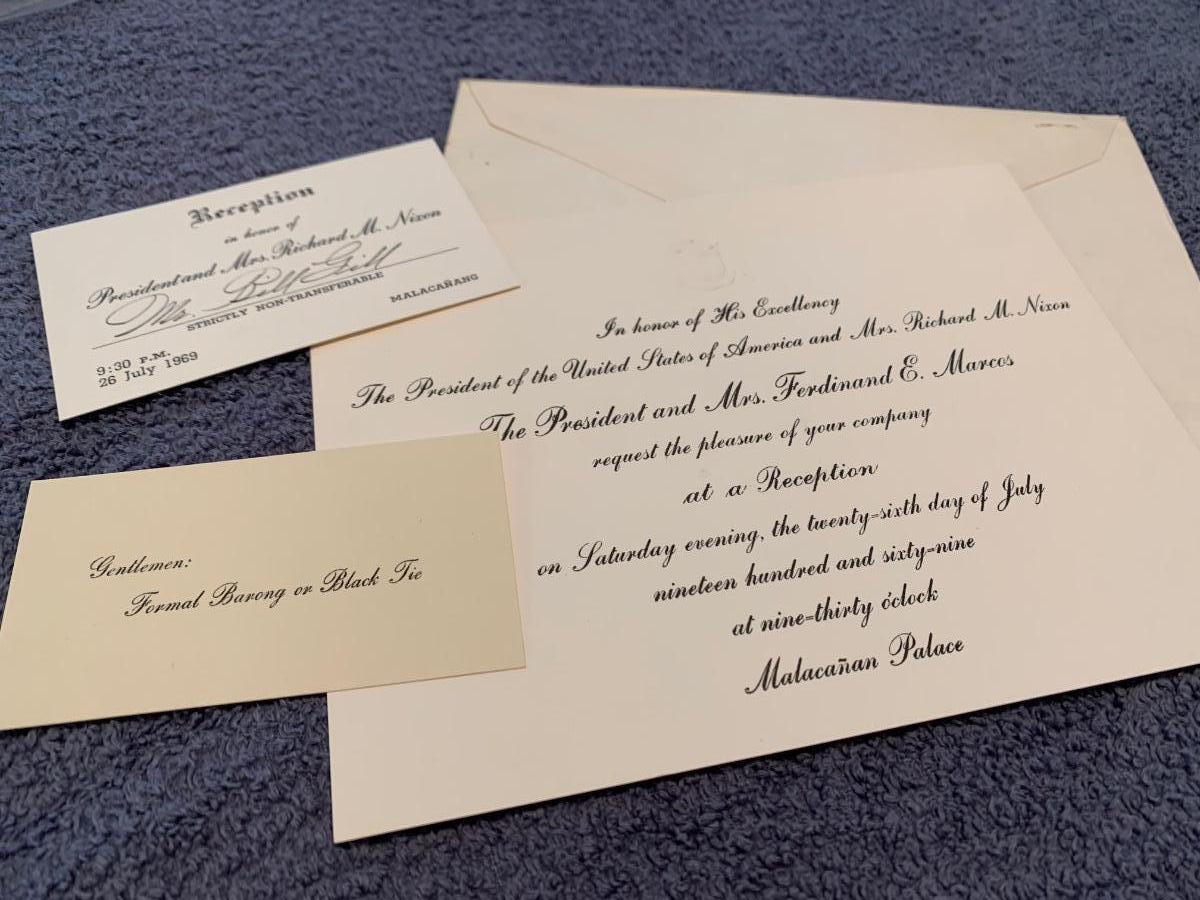 Reception
in honor of
President and Mrs. Richard M. Nixon
Mr. Bill Gill
STRICTLY NON-TRANSFERABLE
MALACAÑANG
9:30 P.M.
26 July 1969
In honor of His Excellency
The President of the United States of America and Mrs. Richard M. Nixon
The President and Mrs. Ferdinand E. Marcos
request the pleasure of your company
at a Reception
on Saturday evening, the twenty-sixth day of July
nineteen hundred and sixty-nine
at nine-thirty o'clock
Malacañan Palace
Gentlemen:
Formal Barong or Black Tie